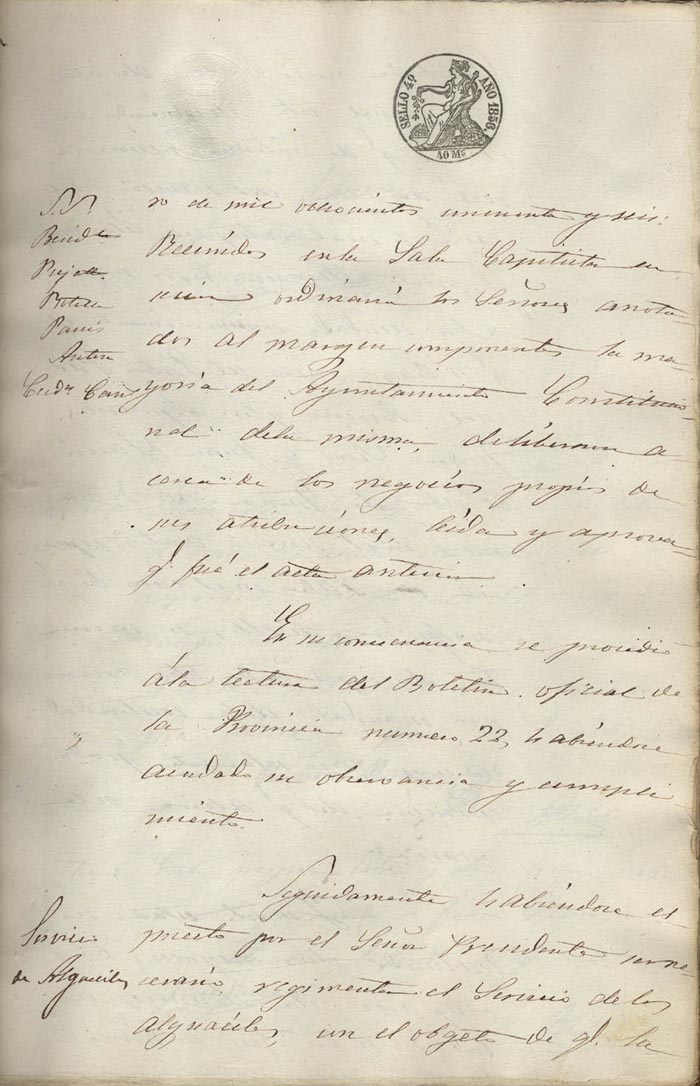 SELLO 4º AÑO 1856.
40 Ms.
S.S.
Botella
Anton
ro de mil ochocientos cincuenta y seis:
Reunidos en la Sala Capitular en
sesion ordinaria los Señores anota-
dos al margen componentes la ma-
yoria del Ayuntamiento Constitucio-
nal de la misma, deliberaron a
cerca de los negocios propios de
sus atribuciones, leida y aprovad
q. fué el acta anterior
En su consecuencia se procedió
á la lectura del Boletin oficial de
la Provincia numero 22, habiendose
acordado su observancia y cumpli
miento.
Servicio
de Alguaciles
Seguidamente habiendose es
puesto por el Señor Presidente ser ne
cesario regimentar el Servicio de los
Alguaciles, con el obgeto de q. la